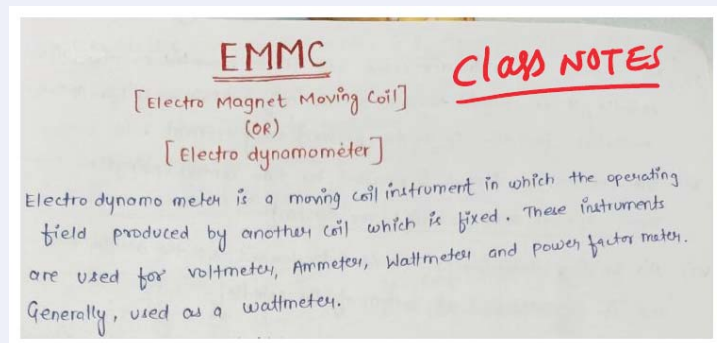 EMMC
Class NOTES
[Electro Magnet Moving Coil]
(OR)
[Electro dynamometer]
Electro dynamo meter is a moving coil instrument in which the operating
field produced by another coil which is fixed. These instruments
are used for voltmeter, Ammeter, Wattmeter and power factor meter.
Generally, used as a wattmeter.